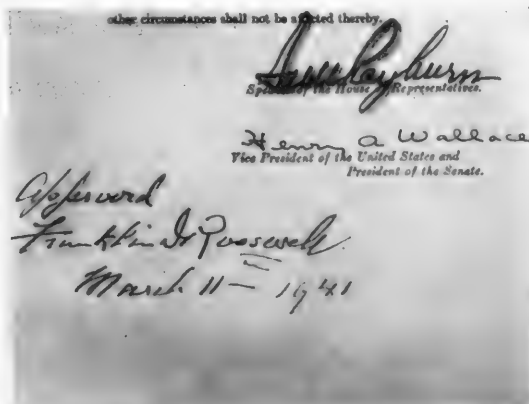 other circumstances shall not be affected thereby.
Sam Rayburn
Speaker of the House of Representatives.
Henry A Wallace
Vice President of the United States and
President of the Senate.
Approved
Franklin D Roosevelt
March 11 — 1941